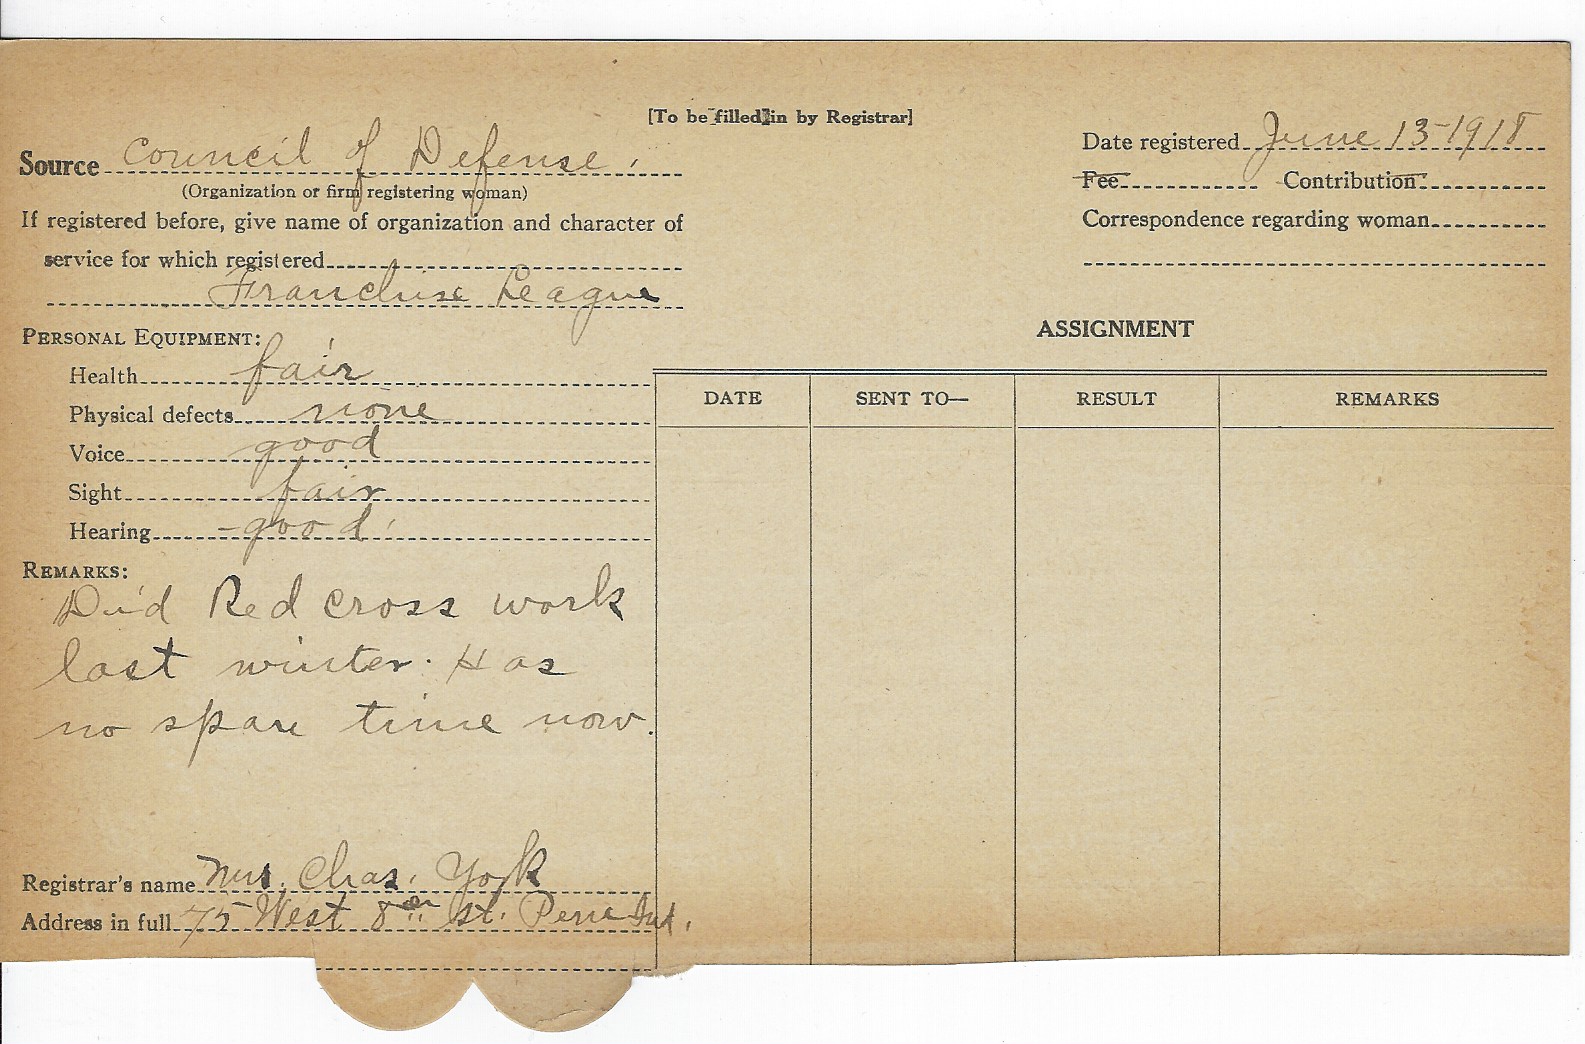 [To be filled in by Registrar]
Source Council of Defense.
(Organization or firm registering woman)
If registered before, give name of organization and character of
service for which registered
Franchise League
Date registered June 13-1918
Fee Contribution
Correspondence regarding woman
PERSONAL EQUIPMENT:
Health fair
Physical defects none
Voice good
Sight fair
Hearing good
REMARKS:
Did Red Cross work
last winter. Has
no spare time now.
Registrar's name Mrs. Chas. York
Address in full 75 West 8th St. Peru Ind.
ASSIGNMENT
DATE SENT TO— RESULT REMARKS